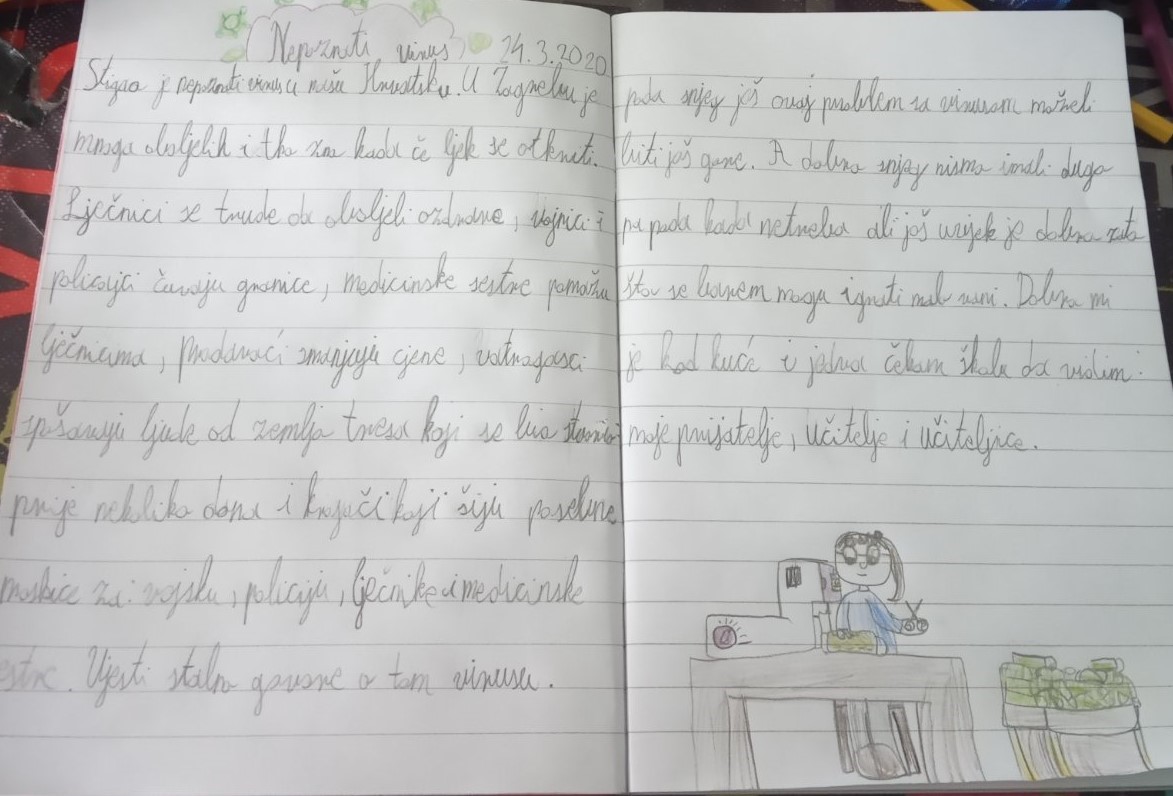 Nepoznati virus 24.3.2020
Stigao je nepoznati virus u našu Hrvatsku. U Zagrebu je
mnogo oboljelih i tko zna kada če ljek se otkriti.
Lječnici se trude da oboljeli ozdrave, vojnici i
policajci čuvaju granice, medicinske sestre pomažu
lječnicima, prodavaći smanjuju cjene, vatrogasci
spašavaju ljude od zemlja tresa koji se bio stvorio
prije nekoliko dana i krojači koji šiju posebne
maskice za: vojsku, policiju, lječnike i medicinske
estre. Vjesti stalno govore o tom virusu.
pada snjeg još ovaj problem sa virusom moželi
biti još gore. A dobro snjeg nismo imali dugo
pa pada kada netreba ali još uvijek je dobro zato
što se barem mogu igrati mal vani. Dobro mi
je kod kuće i jedva čekam školu da vidim
moje prijatelje, učitelje i učiteljice.